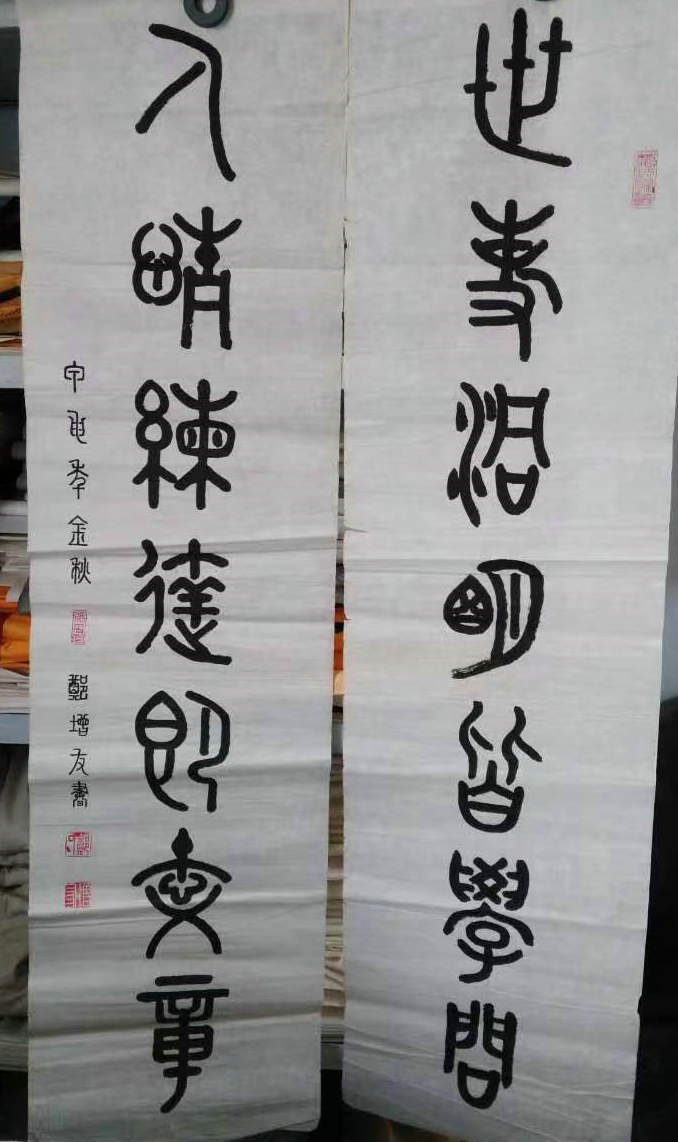 世事洞明皆學問
人情練達即文章
甲申年金秋
鄭增友書